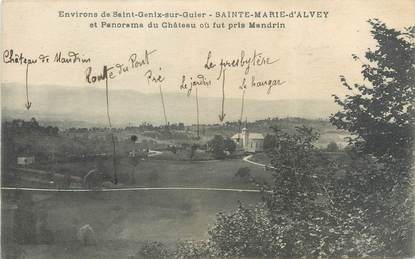 Environs de Saint-Genix-sur-Guier - SAINTE-MARIE-d'ALVEY
et Panorama du Château où fut pris Mandrin
Château de Mandrin
Route du Pont
Pré
Le jardin
Le presbytère
Le hangar